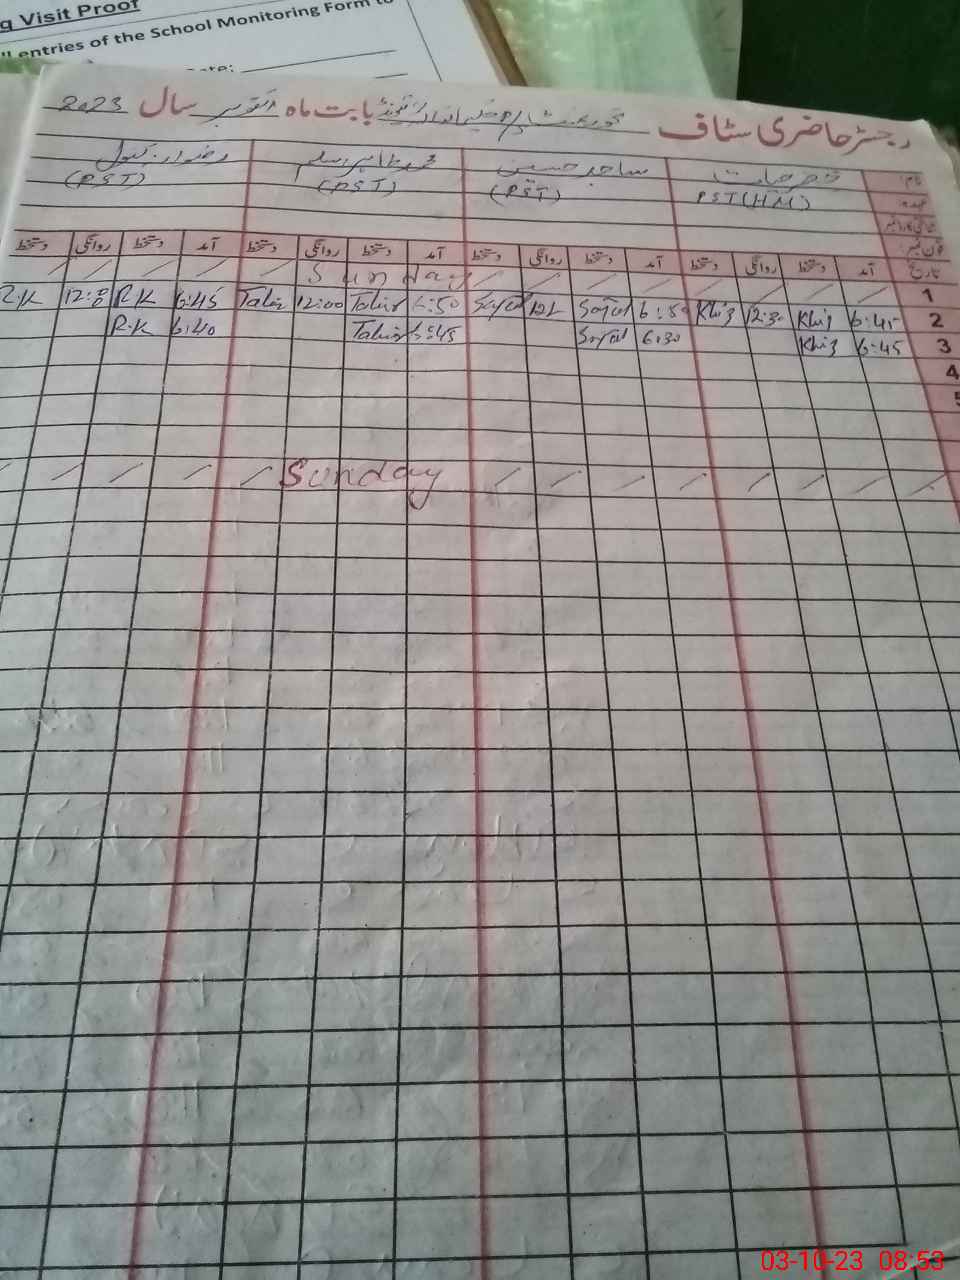 Visit Proof
entries of the School Monitoring Form to
رجسٹر حاضری سٹاف گورنمنٹ بابت ماہ اکتوبر سال 2023
نام: خضر حیات ساجد حسین محمد طاہر سلیم رضوان کنول
عہدہ: PST (HM) (PST) (PST) (PST)
فون نمبر:
تاریخ آمد دستخط روانگی دستخط آمد دستخط روانگی دستخط آمد دستخط روانگی دستخط آمد دستخط روانگی دستخط
1 Sunday
R.K 12:00 R.K 6:45 Tahir 12:00 Tahir 6:50 Sajid 12 Sajid 6:50 Khiz 12:30 Khiz 6:45 2
R.K 6:40 Tahir 6:45 Sajid 6:30 Khiz 6:45 3
4
5
Sunday
03-10-23 08:53